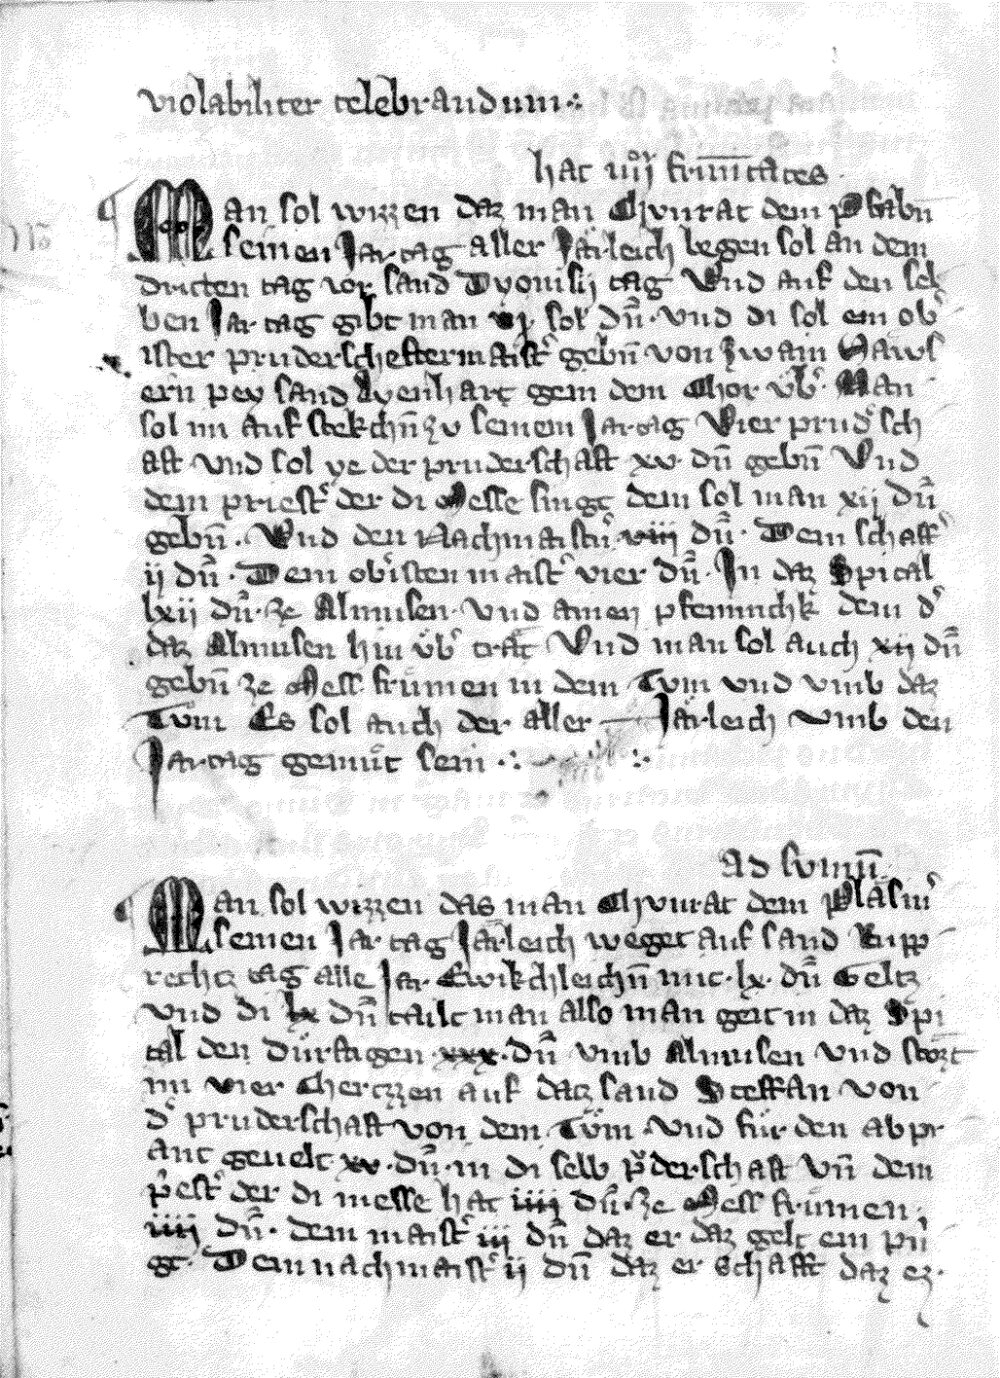 violabiliter celebrandum
hat iiij frūītates
Man sol wizzen daz man Chvnrat dem Pᷓsabn̄
seinen Jartag aller Järleich begen sol an dem
dritten tag vor sand Dyonisij tag Vnd auf den sel
ben Jartag gibt man vj sol dn̄ vnd di sol ein ob
ister pruderscheftermaist gebn̄ von zwain Haws
ern pey sand Lyenhart gein dem Chor vb Man
sol im auf stekchn̄ zv seinem Jartag Vier prud sch
aft vnd sol ye der pruderschaft xv dn̄ gebn̄ Vnd
dem priest der di Messe singt dem sol man xij dn̄
gebn̄ . Vnd den Nachmaistn viii dn̄ . Dem schaff
ij dn̄ . Dem obristen maist vier dn̄ . In daz Spital
lxij dn̄ ze Almusen vnd ainen pfenninchk dem d
daz Almusen hin vb trät Vnd man sol auch xij dn̄
gebn̄ ze Mess frümen in dem Tvm vnd vmb daz
Tvm Es sol auch der aller Järleich vmb den
Jartag gemüt sein
Ad svmm̄
Man sol wizzen das man Chvnrat dem Pläsin
seinen Jar tag Järleich weget auf sand Rupp
rechtz tag alle Jar Ewikchleichn̄ mit lx dn̄ Geltz
vnd di lx dn̄ tailt man also man geit in daz Spi
tal den Dürftigen xxx dn̄ vmb Almusen vnd stozt
im vier Chertzzen auf datz sand Steffan von
d pruderschaft von dem Tüm vnd für den abpr
ant gevelt xv dn̄ in di selb pderschaft vn̄ dem
pest der di messe hat iiii dn̄ ze Mess frümen
iiij dn̄ . dem maist iij dn̄ daz er daz gelt ein prin
gt . Dem nachmaist ij dn̄ daz er schafft daz ez .